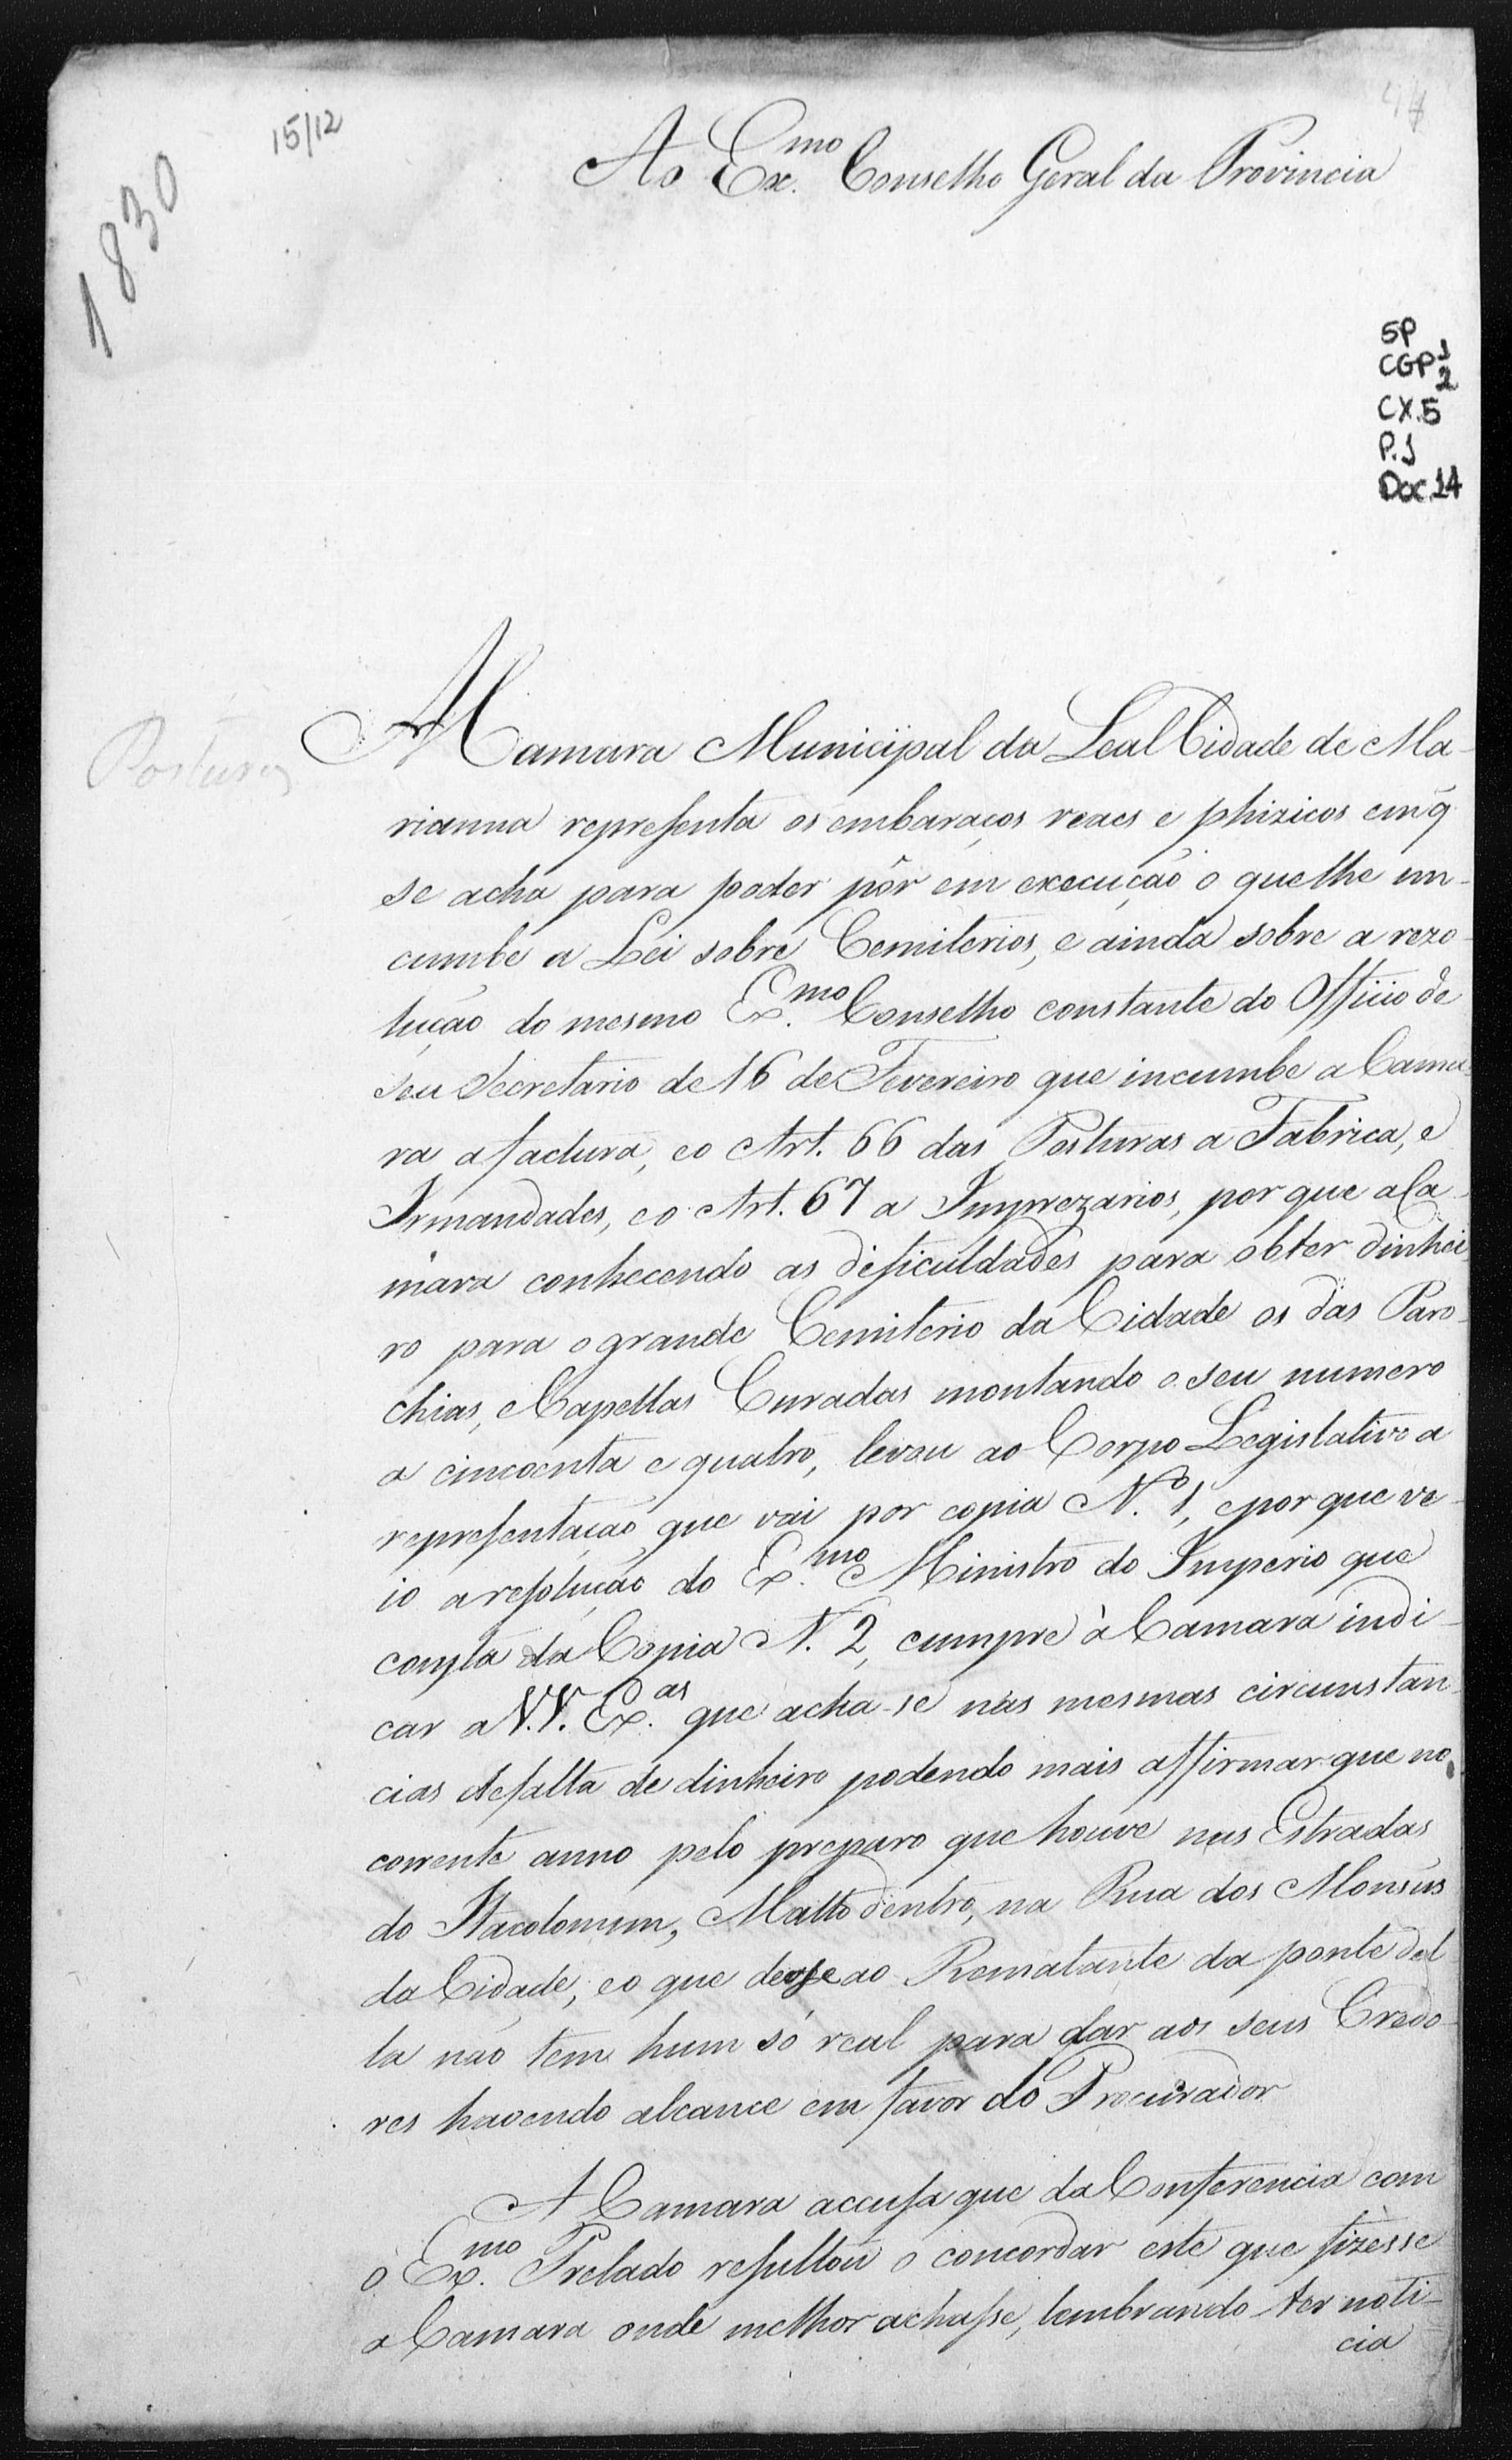 15/12
1830
44
Ao Ex.mo Conselho Geral da Provincia
5P
CGP 1
2
CX.5
P.1
Doc.14
Posturas
A Camara Municipal da Leal Cidade de Ma-
rianna representa os embaraços reaes e phizicos em q̃
se acha para poder pôr em execução o que lhe in-
cumbe a Lei sobre Cemiterios, e ainda sobre a rezo-
lução do mesmo Ex.mo Conselho constante do Officio de
seu Secretario de 16 de Fevereiro que incumbe a Cama-
ra a factura, e o Art. 66 das Posturas a Fabrica, e
Irmandades, e o Art. 67 a Imprezarios, por que a Ca-
mara conhecendo as dificuldades para obter dinhei-
ro para o grande Cemiterio da Cidade os das Paro-
chias, e Capellas Curadas montando o seu numero
a cincoenta e quatro, levou ao Corpo Legislativo a
representação que vai por copia N.º 1, e por que ve-
io a resolução do Ex.mo Ministro do Imperio que
consta da Copia N. 2, cumpre à Camara indi-
car a V.V. Ex.as que acha-se nas mesmas circunstan-
cias de falta de dinheiro podendo mais affirmar que no
corrente anno pelo preparo que houve nas Estradas
do Itacolomim, Matto dentro, na Rua dos Monsus
da Cidade, e o que deve-se ao Rematante da ponte del-
la não tem hum só real para dar aos seus Credo-
res havendo alcance em favor do Procurador
A Camara accusa que da Conferencia com
o Ex.mo Prelado resultou o concordar este que fizesse
a Camara onde melhor achasse, lembrando ter noti-
cia